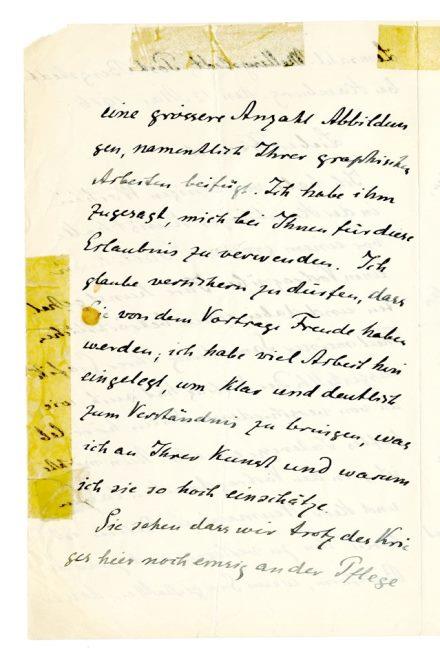 eine grössere Anzahl Abbildun
gen, namentlich Ihrer graphischen
Arbeiten beifügt. Ich habe ihm
zugesagt, mich bei Ihnen für diese
Erlaubnis zu verwenden. Ich
glaube versichern zu dürfen, dass
Sie von dem Vortrage Freude haben
werden; ich habe viel Arbeit hin
eingelegt, um klar und deutlich
zum Verständnis zu bringen, was
ich an Ihrer Kunst und warum
ich sie so hoch einschätze.
Sie sehen dass wir trotz des Krie
ges hier noch emsig an der Pflege